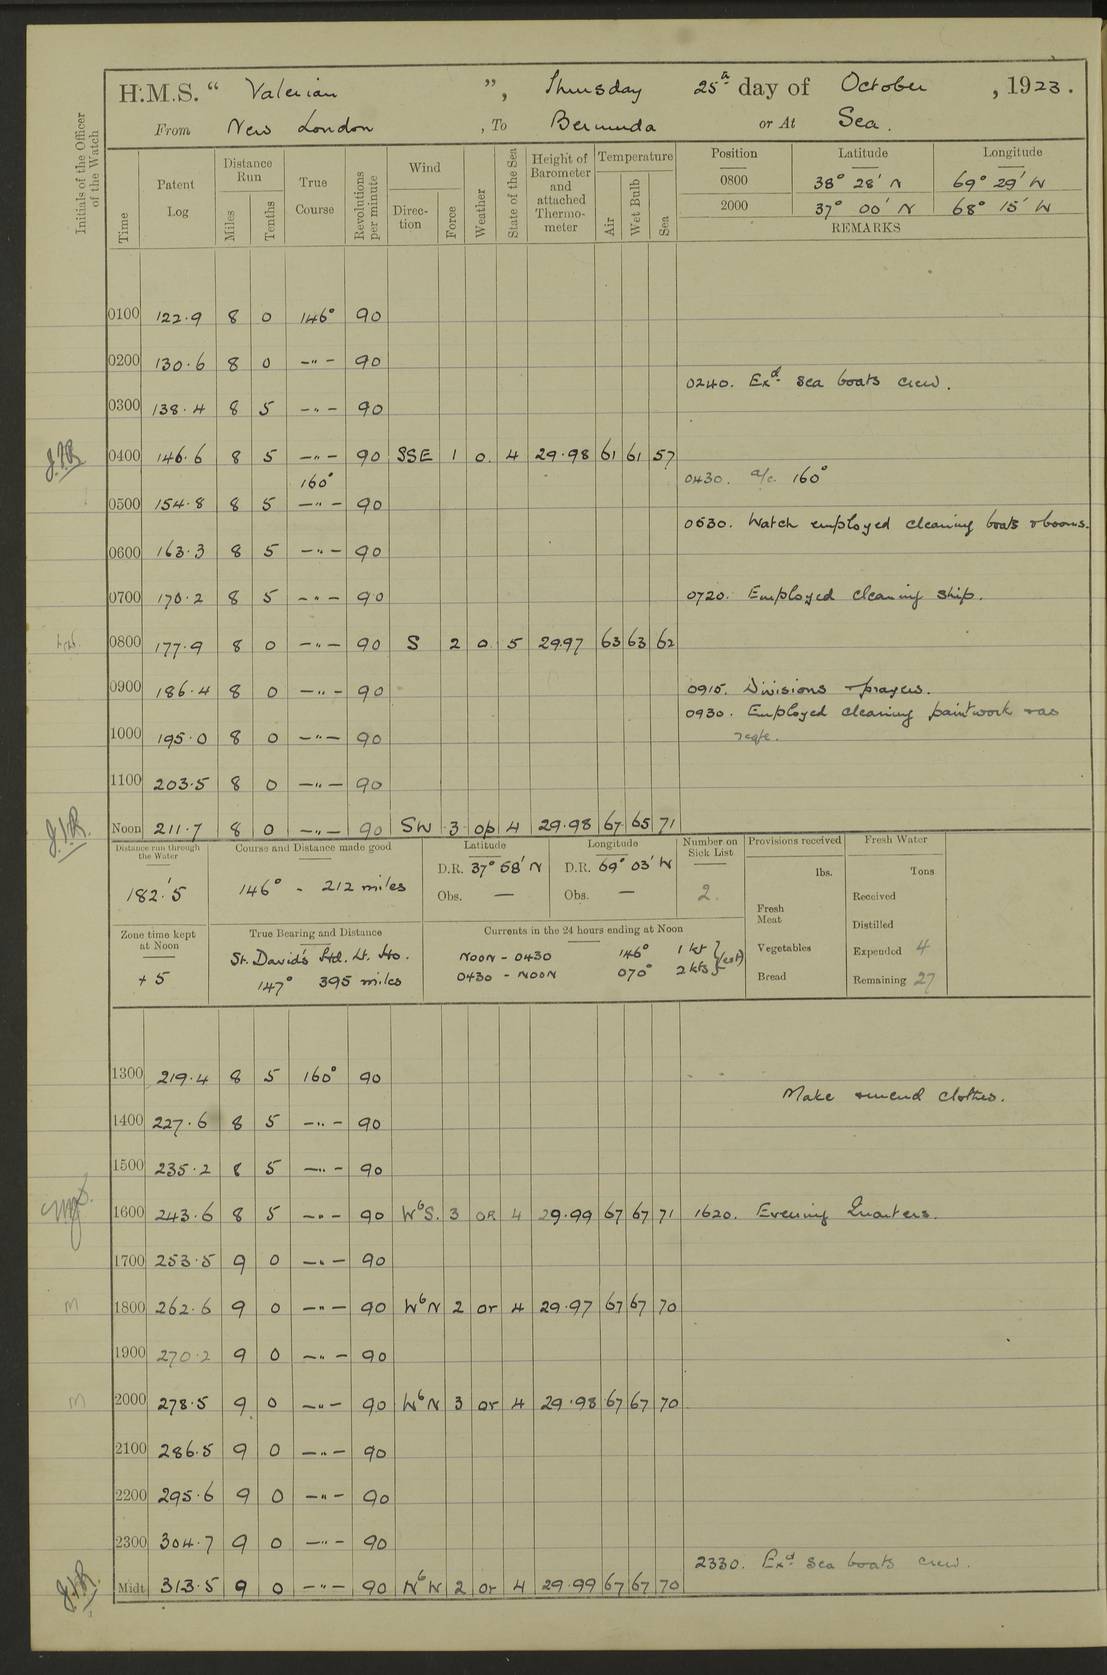 H.M.S. “ Valerian ”, Thursday 25th day of October , 1923.
From New London , To Bermuda or At Sea.
Initials of the Officer of the Watch
Time
Patent Log
Distance Run
Miles
Tenths
True Course
Revolutions per minute
Wind
Direction
Force
Weather
State of the Sea
Height of Barometer and attached Thermometer
Temperature
Air
Wet Bulb
Sea
Position Latitude Longitude
0800 38° 28' N 69° 29' W
2000 37° 00' N 68° 15' W
REMARKS
0100 122.9 8 0 146° 90
0200 130.6 8 0 —"— 90
0240. Exd. sea boats crew.
0300 138.4 8 5 —"— 90
0400 146.6 8 5 —"— 90 SSE 1 o. 4 29.98 61 61 57
0430. a/c. 160°
160°
0500 154.8 8 5 —"— 90
0630. Watch employed cleaning boats & booms.
0600 163.3 8 5 —"— 90
0700 170.2 8 5 —"— 90 0720. Employed cleaning ship.
0800 177.9 8 0 —"— 90 S 2 o. 5 29.97 63 63 62
0900 186.4 8 0 —"— 90 0915. Divisions & prayers.
0930. Employed cleaning paintwork & as
reqte.
1000 195.0 8 0 —"— 90
1100 203.5 8 0 —"— 90
Noon 211.7 8 0 —"— 90 SW 3 op 4 29.98 67 65 71
Distance run through the Water
182.'5
Course and Distance made good
146° - 212 miles
Latitude
D.R. 37° 58' N
Obs. —
Longitude
D.R. 69° 03' W
Obs. —
Number on Sick List
2.
Provisions received
lbs.
Fresh Meat
Vegetables
Bread
Fresh Water
Tons
Received
Distilled
Expended 4
Remaining 27
Zone time kept at Noon
+ 5
True Bearing and Distance
St. David's Hd. Lt. Ho.
147° 395 miles
Currents in the 24 hours ending at Noon
NOON - 0430 146° 1 kt
0430 - NOON 070° 2 kts (est)
1300 219.4 8 5 160° 90
Make & mend clothes.
1400 227.6 8 5 —"— 90
1500 235.2 8 5 —"— 90
1600 243.6 8 5 —"— 90 WbS. 3 or 4 29.99 67 67 71 1620. Evening Quarters.
1700 253.5 9 0 —"— 90
1800 262.6 9 0 —"— 90 WbN 2 or 4 29.97 67 67 70
1900 270.2 9 0 —"— 90
2000 278.5 9 0 —"— 90 WbN 3 or 4 29.98 67 67 70
2100 286.5 9 0 —"— 90
2200 295.6 9 0 —"— 90
2300 304.7 9 0 —"— 90
2330. Exd sea boats crew.
Midt. 313.5 9 0 —"— 90 NbW 2 or 4 29.99 67 67 70